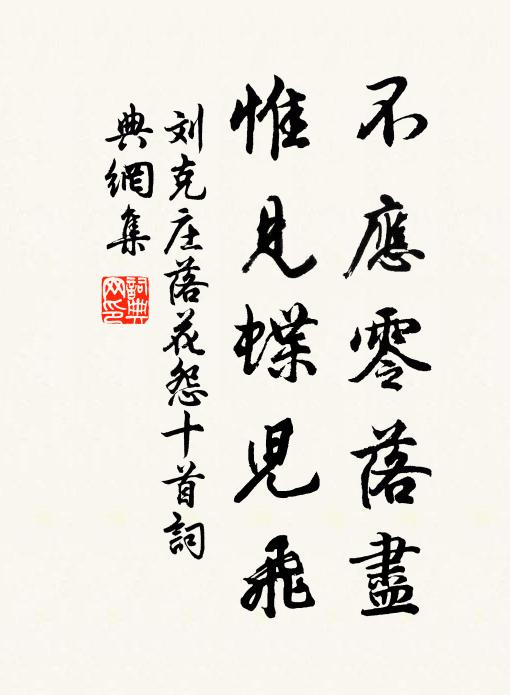 不應零落盡
惟見蝶兒飛
刘克庄落花怨十首詞
典網集
詞典
网印